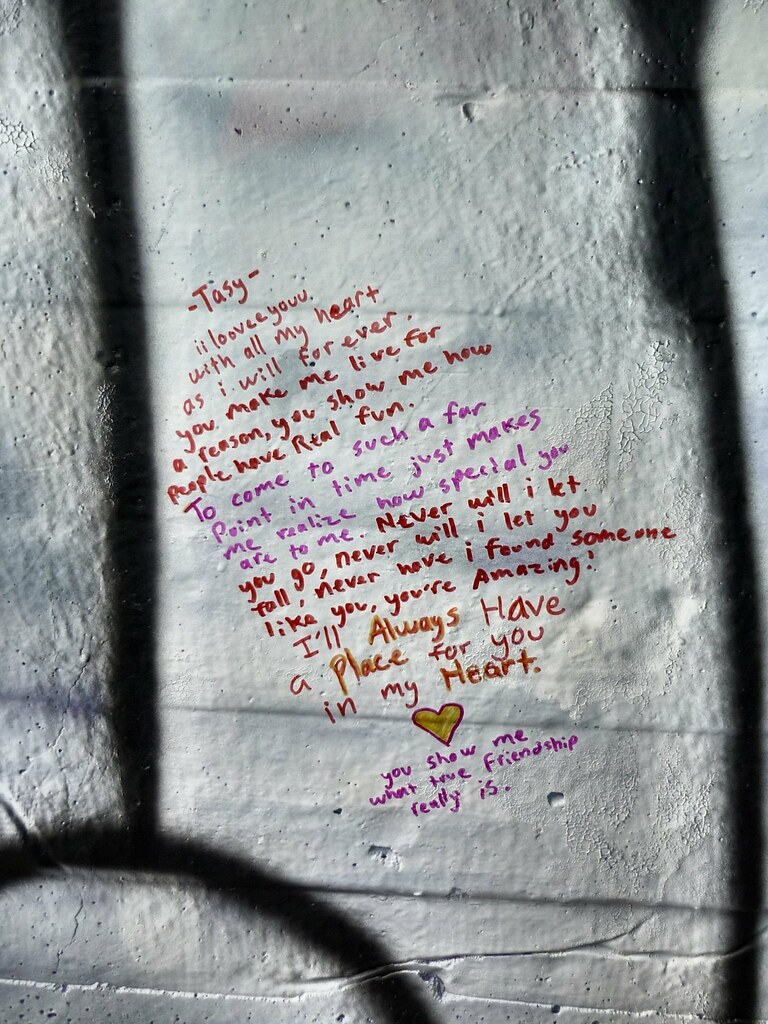 -Tasy-
iilooveeyouu
with all my heart
as i will forever.
you make me live for
a reason, you show me how
people have Real fun.
To come to such a far
Point in time just makes
me realize how special you
are to me. Never will i let
you go, never will i let you
fall, never have i found someone
like you, you're Amazing!
I'll Always Have
a Place for you
in my Heart.
you show me
what true friendship
really is.